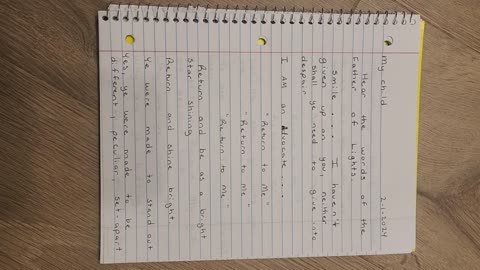 2.1.2024
My child
Hear the words of the
Father of Lights.
Smile . . . I haven't
given up on you, neither
shall ye need to give into
despair
I AM an Advocate . . .
"Return to Me"
"Return to Me"
"Return to Me"
Return and be as a bright
star shining
Return and shine bright
Ye were made to stand out
Yes, ye were made to be
different, peculiar, set-apart